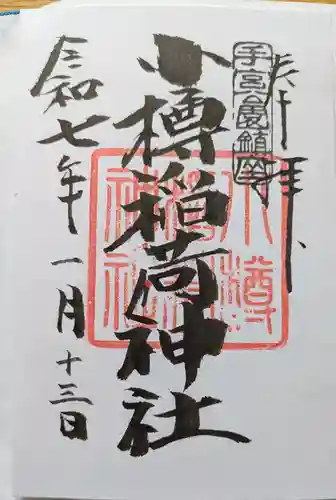 奉拝
手宮最鎮座
小樽稲荷神社
小樽稲荷神社
令和七年
一月十三日